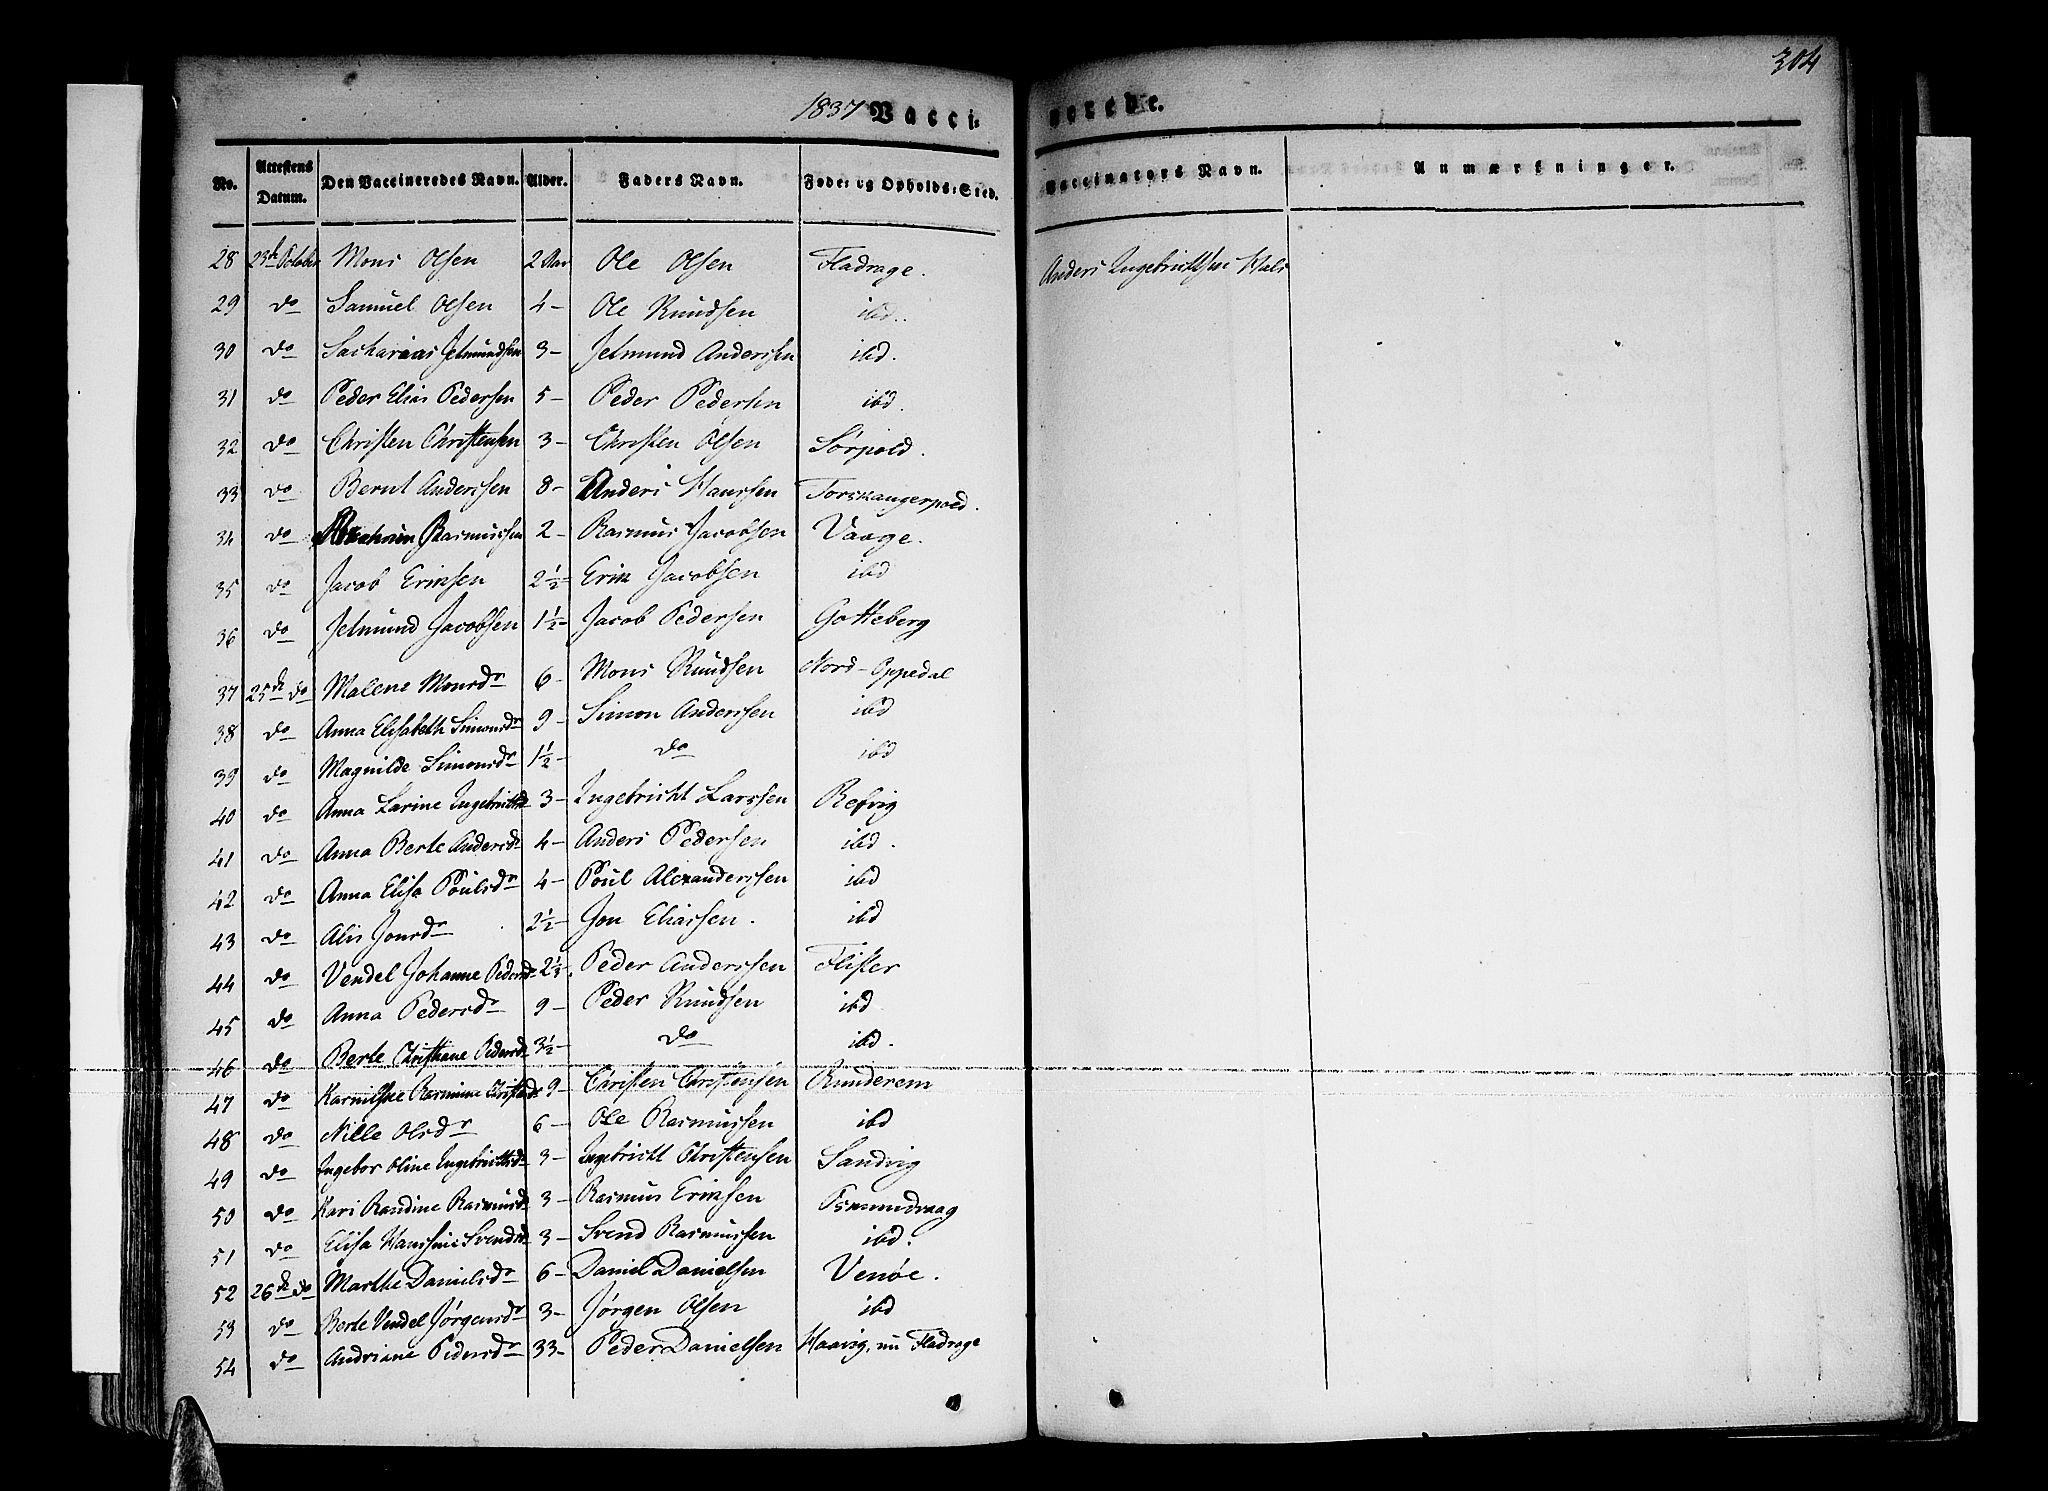 304
1837 Vacci:
nerede.
No. Attestens Datum. Den Vaccineredes Navn. Alder. Faders Navn. Føde: og Opholds:Sted. Vaccinators Navn. Anmærkninger.
28 23de October Mons Olsen 2 Aar Ole Olsen Fladrage. Anders Ingebrichtsen Hals
29 do Samuel Olsen 4 - Ole Knudsen ibd.
30 do Sacharias Jetmundsen 3 - Jetmund Anderssen ibd.
31 do Peder Elias Pedersen 5 - Peder Pedersen ibd.
32 do Christen Christensen 3 - Christen Olsen Sørpold.
33 do Bernt Anderssen 8 - Anders Hanssen Torskangerpold.
34 do Abraham Rasmussen 2 - Rasmus Jacobsen Vaage.
35 do Jacob Eriksen 2½ - Erik Jacobsen ibd
36 do Jetmund Jacobsen 1½ - Jacob Pedersen Gotteberg
37 25de do Malene Monsdr 6 - Mons Knudsen Nord-Oppedal
38 do Anna Elisabeth Simonsdr 9 - Simon Anderssen ibd
39 do Magnilde Simonsdr 1½ - do ibd
40 do Anna Larine Ingebrichtsdr 3 - Ingebricht Larssen Refvig
41 do Anna Berte Andersdr 4 - Anders Pedersen ibd.
42 do Anna Elisa Poulsdr 4 - Poul Alexanderssen ibd
43 do Alis Jonsdr 2½ - Jon Eliassen. ibd
44 do Vendel Johanne Pedersdr 2½. Peder Anderssen Flister
45 do Anna Pedersdr 9 - Peder Knudsen ibd
46 do Berte Christiane Pedersdr 3½ - do ibd.
47 do Rasmine Christensdr 9 - Christen Christensen Runderem
48 do Nille Olsdr 6 - Ole Rasmussen ibd
49 do Ingebor Oline Ingebrichtsdr 3 - Ingebricht Christensen Sandvig
50 do Kari Randine Rasmusdr 3 - Rasmus Eriksen Osmundvaag
51 do Elisa Hanssine Svendsdr 3 - Svend Rasmussen ibd.
52 26de do Marthe Danielsdr 6 - Daniel Danielsen Venøe.
53 do Berte Vendel Jørgensdr 3 - Jørgen Olsen ibd
54 do Andriane Pedersdr 33 - Peder Danielsen Haavig, nu Fladrage